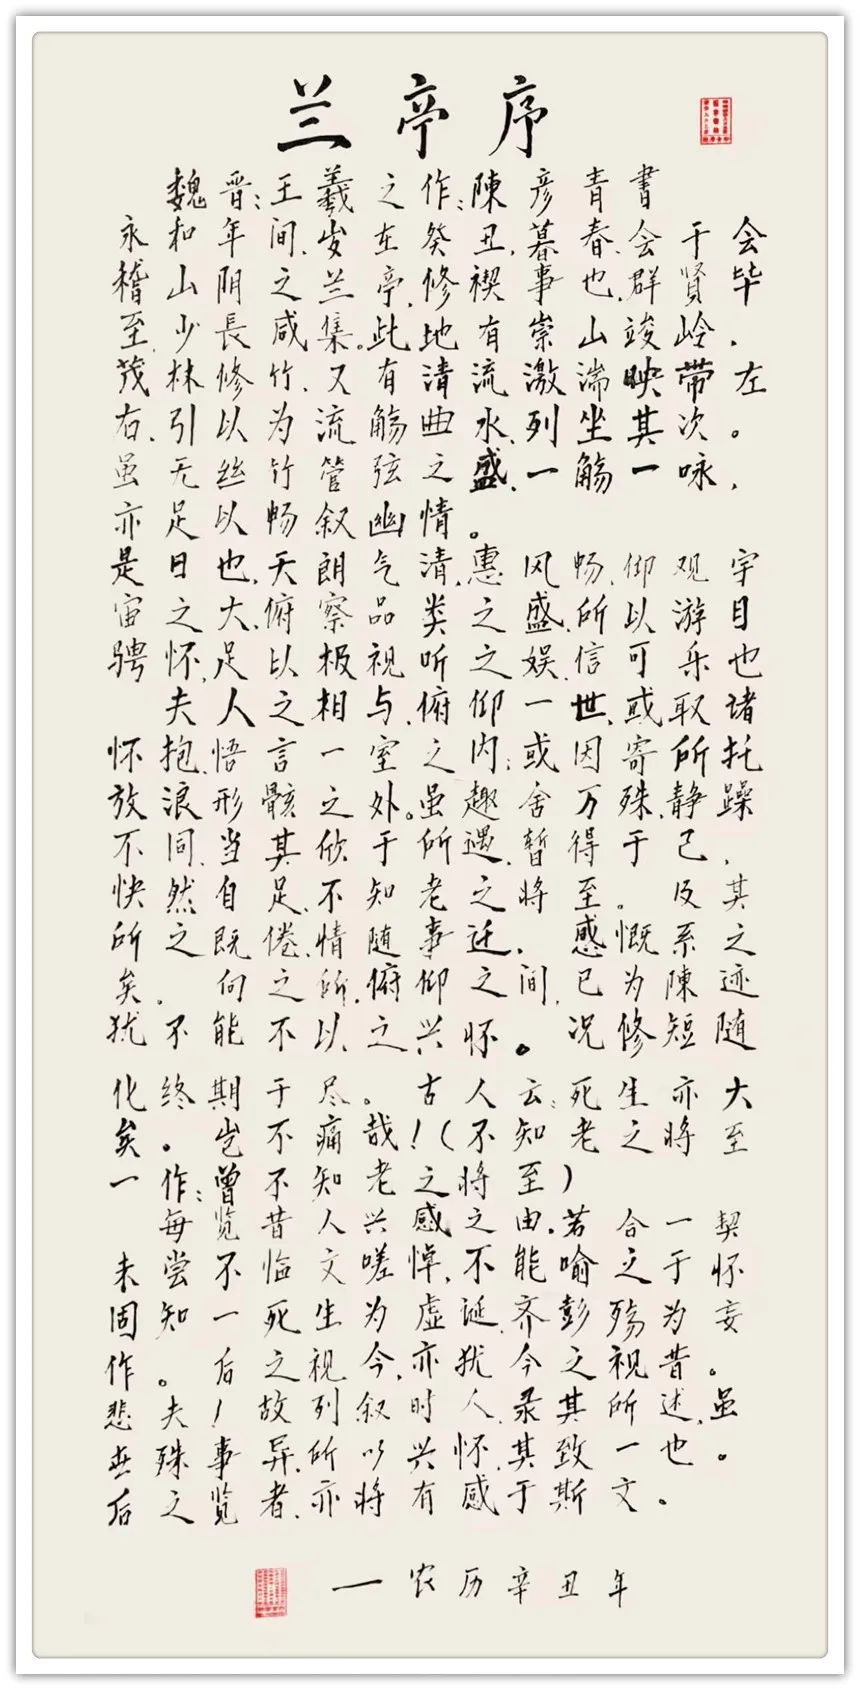 兰亭序
魏晋:王羲之作:陳彦青書
永和年间,岁在癸丑,暮春,会于会
稽山阴之兰亭,修禊事也,群贤毕
至,少長咸集。此地有崇山竣岭,
茂林修竹,又有清流激湍映带左
右,引以为流觞曲水,列坐其次。
虽无丝竹管弦之盛,一觞一咏,
亦足以畅叙幽情。
是日也,天朗气清,惠风畅,仰观宇
宙之大,俯察品类之盛,所以游目
骋怀,足以极视听之娱,信可乐也
夫人之相与,俯仰一世,或取诸
怀抱,悟言一室之内;或因寄所托
放浪形骸之外。虽趣舍万殊,静躁
不同,当其欣于所遇,暂得于己,
快然自足,不知老之将至。及其
所之既倦,情随事迁,感慨系之
矣。向之所,俯仰之间,已为陳迹
犹不能不以之兴怀。况修短随
化终期于尽。古人云:死生亦大
矣。岂不痛哉!(不知老之将至
一作:曾不知老之将至)
每览昔人兴感之由,若合一契
未尝不临文嗟悼,不能喻之于怀
固知一死生为虚诞,齐彭殇为妄
作。后之视今,亦犹今之视昔。
悲夫!故列叙时人,录其所述,虽
世殊事异,所以兴怀,其致一也。
后之览者,亦将有感于斯文。
一农历辛丑年